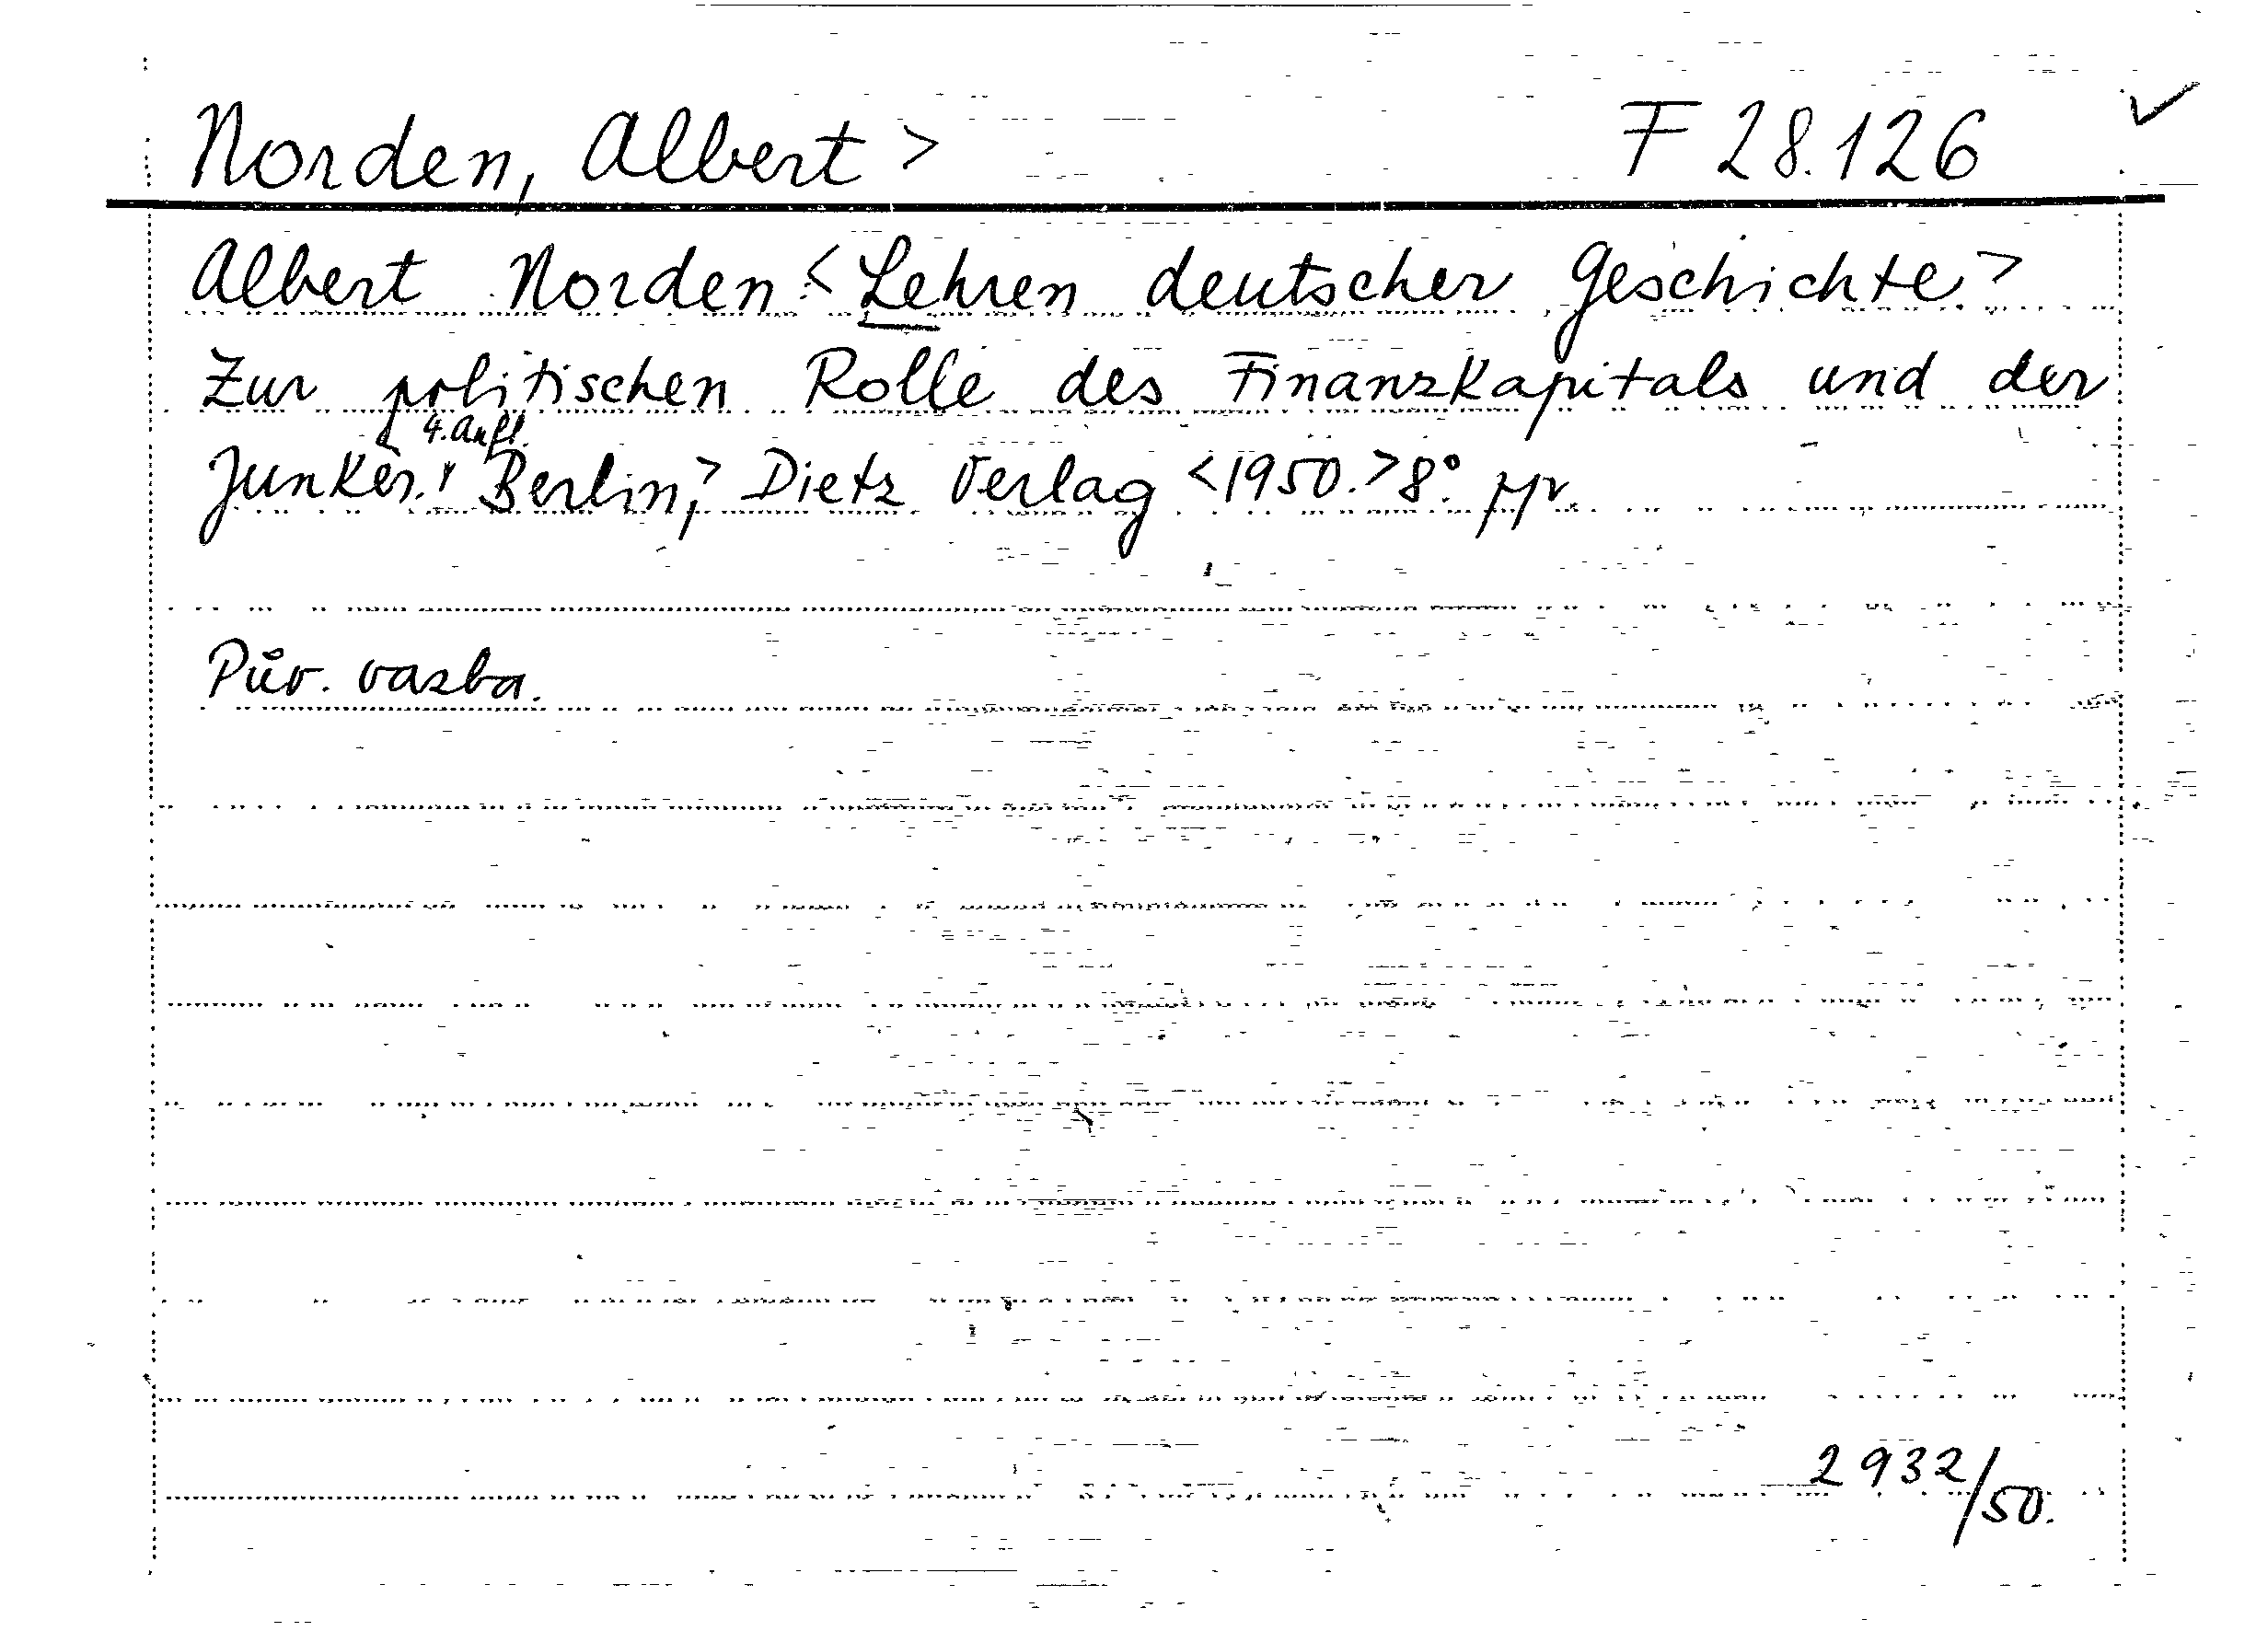 Norden, Albert > F 28.126 ✓
Albert Norden: < Lehren deutscher Geschichte. >
Zur politischen Rolle des Finanzkapitals und der
4. Aufl.
Junker. Berlin, > Dietz Verlag < 1950. > 8°.
Pův. vazba.
2932/50.